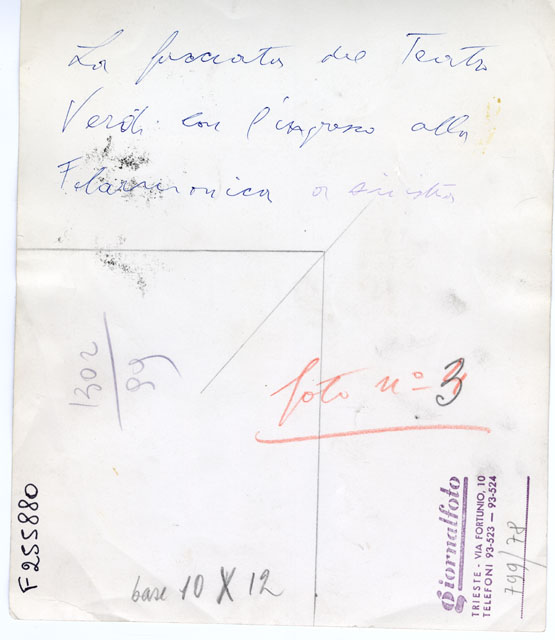 La facciata del Teatro
Verdi con l'ingresso alla
Filarmonica a sinistra
1302
99
foto nº 3
F255880
base 10 X 12
Giornalfoto
TRIESTE - VIA FORTUNIO, 10
TELEFONI 93-523 - 93-524
799/78